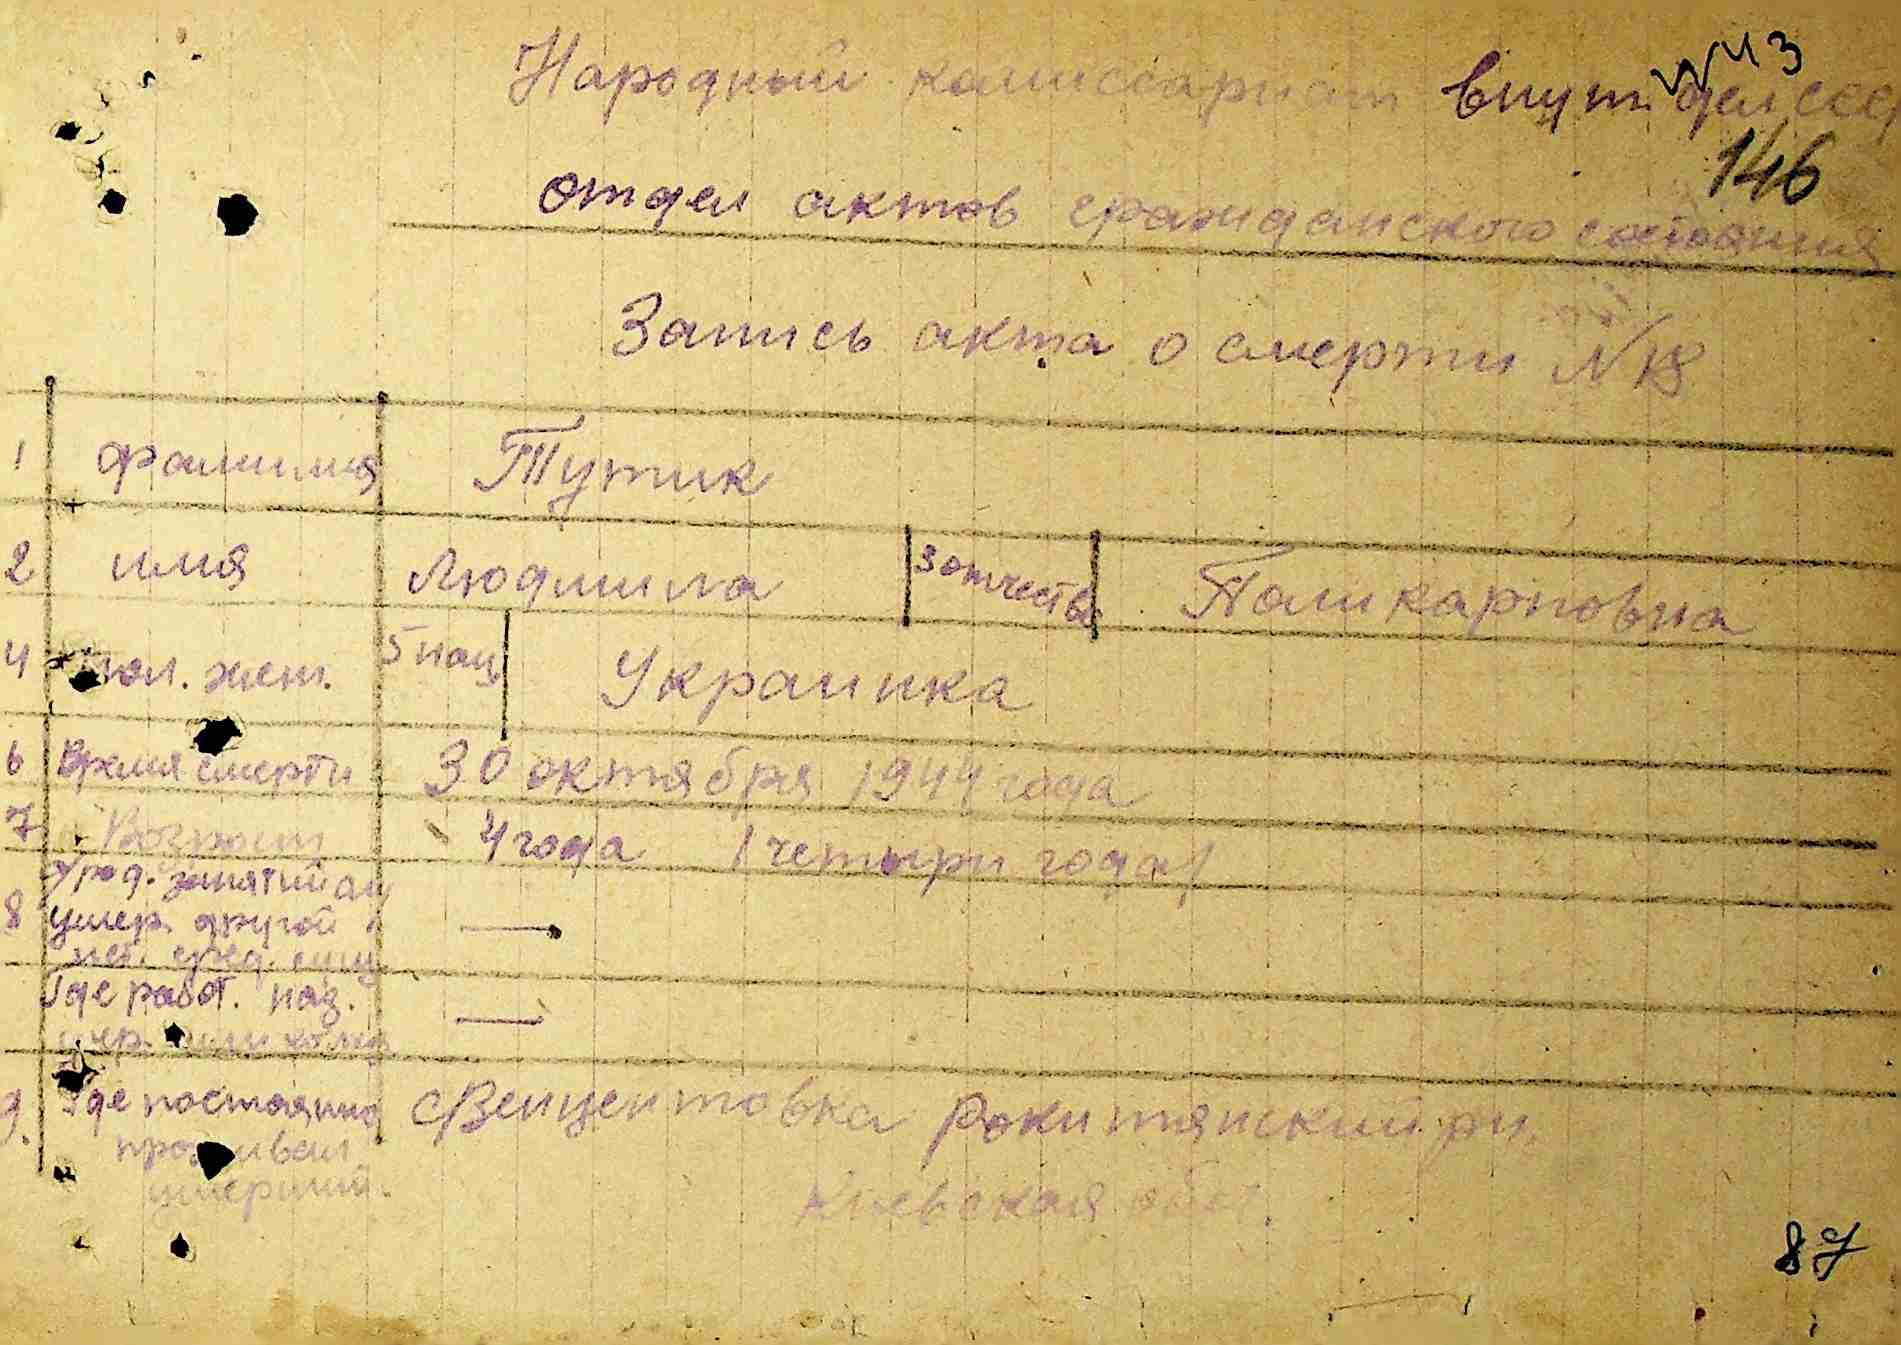 43
Народный комиссариат внут. дел ссср
146
отдел актов гражданского состояния
Запись акта о смерти N 18
1 фамилия Тутик
2 имя Людмила 3 отчеств Поликарповна
4 пол. жен. 5 нац Украинка
6 Время смерти 30 октября 1944 года
7 Возраст 4 года (четыри года)
8 умер. другой
Где работ. наз.
учр. или колхоз
9. Где постоянно с Венцентовка Рокитянский рн.
проживал Киевская обл.
умерший.
87